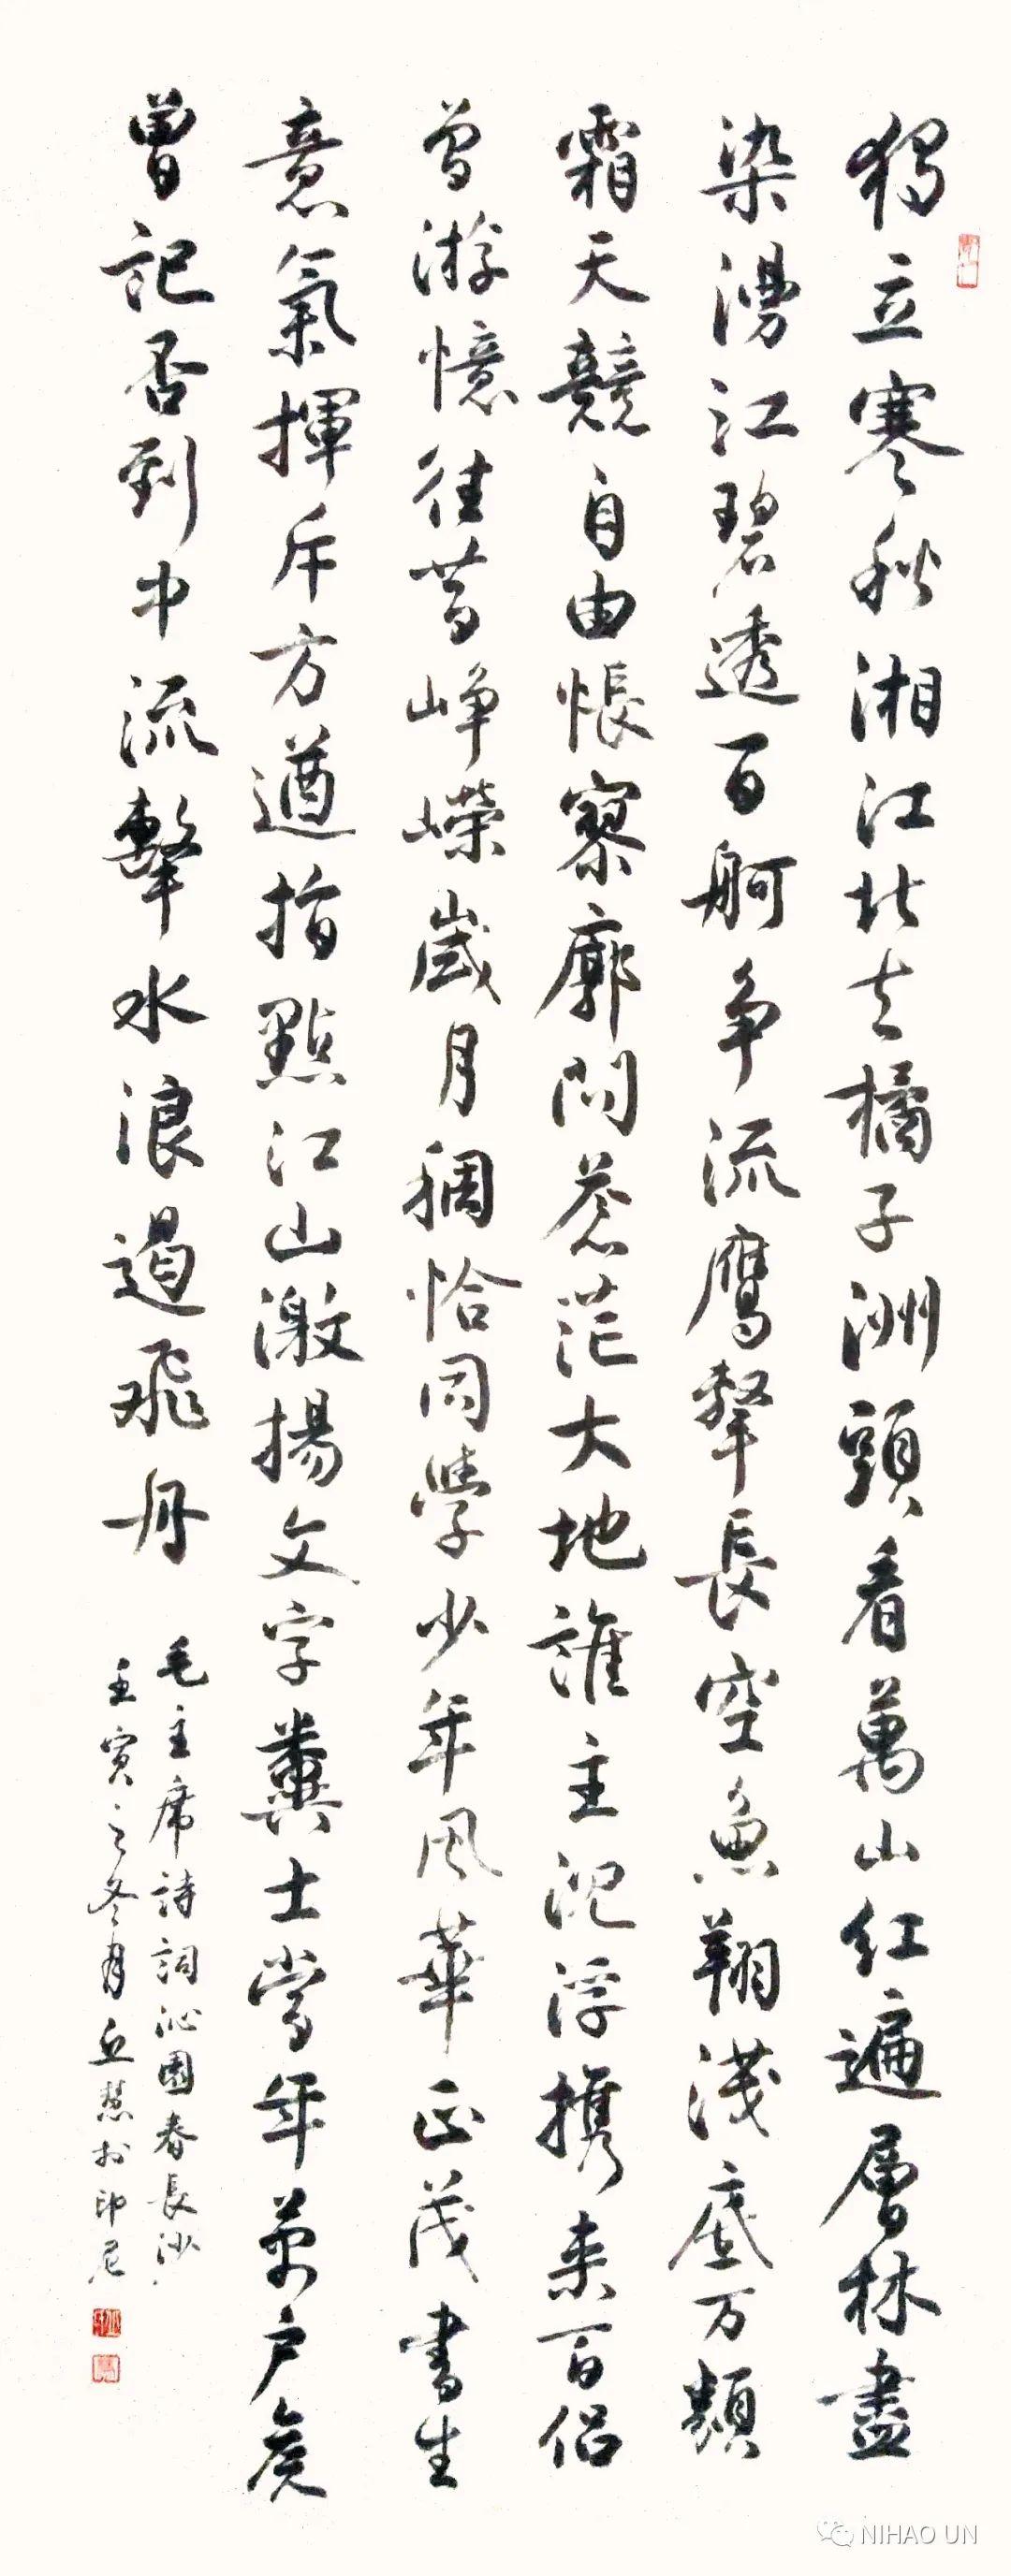 獨立寒秋湘江北去橘子洲頭看萬山红遍層林盡
染漫江碧透百舸争流鹰擊長空魚翔淺底万類
霜天競自由悵寥廓問蒼茫大地誰主沉浮携来百侣
曾游憶往昔峥嶸歲月稠恰同學少年风華正茂書生
意氣揮斥方遒指點江山激揚文字糞土當年萬户侯
曾記否到中流擊水浪遏飛舟
毛主席詩詞沁園春長沙
壬寅之冬月丘慧於印尼
NIHAO UN